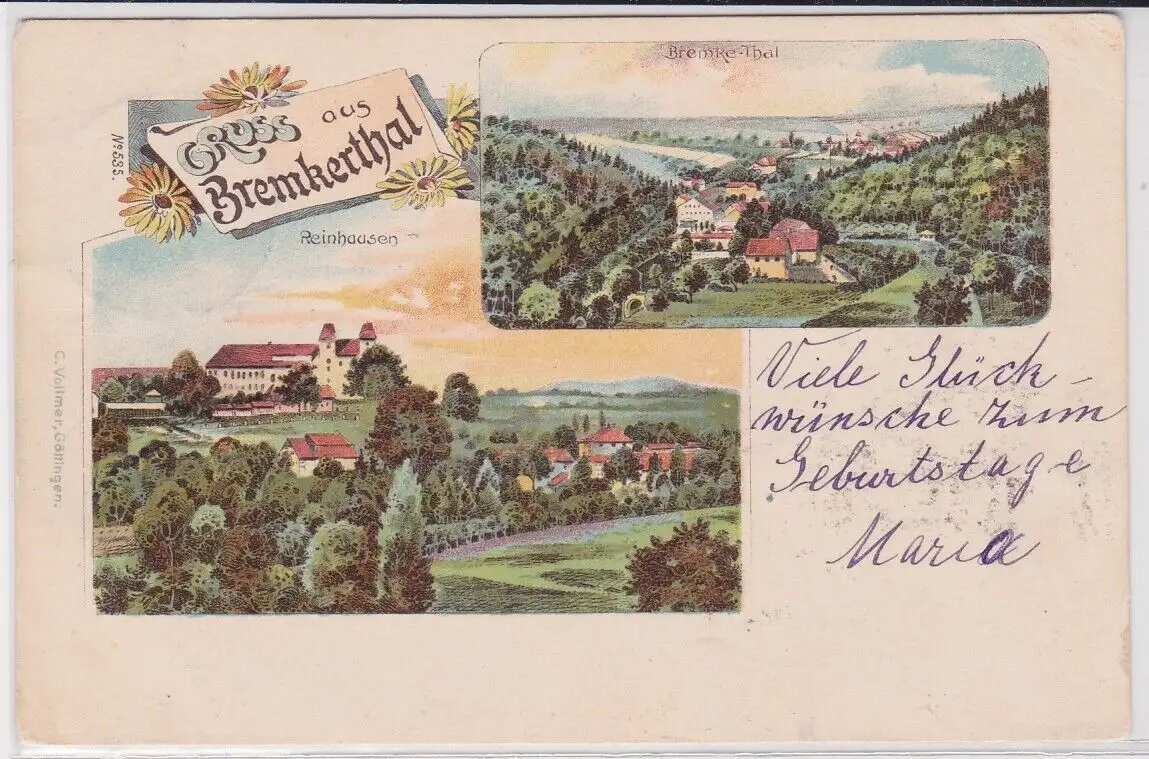 Gruss aus
Bremkerthal
No. 535.
Bremke-Thal
Reinhausen
C. Vollmer, Göttingen.
Viele Glück-
wünsche zum
Geburtstage
Maria